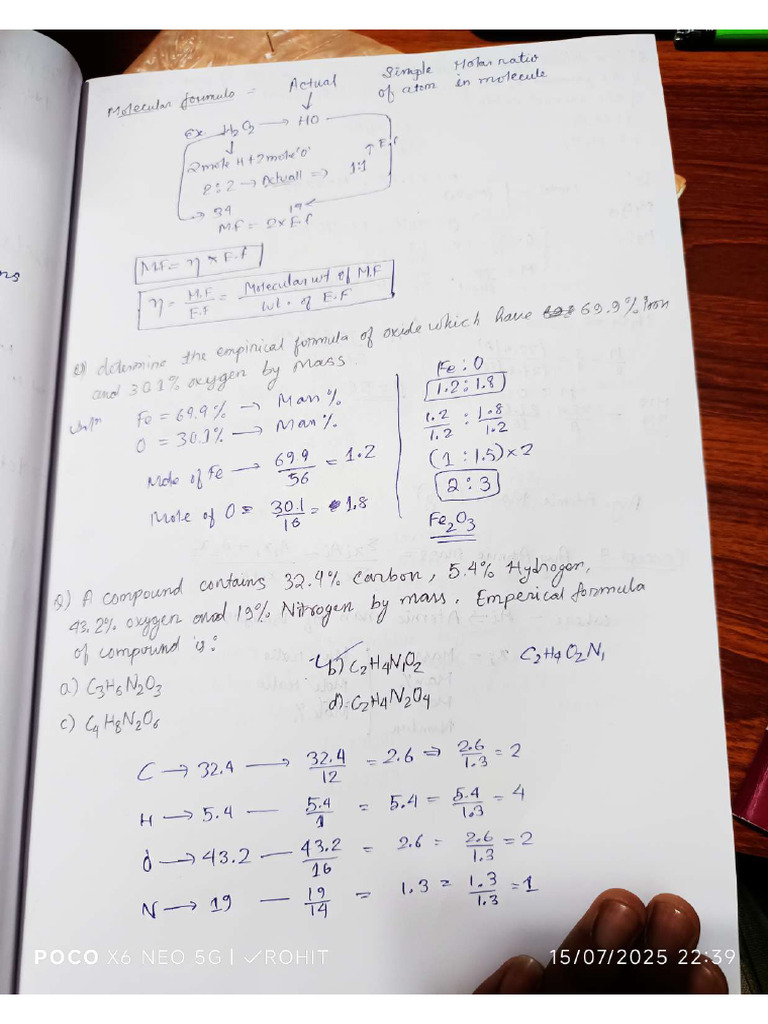 Molecular formula = Actual Simple Molar ratio
of atom in molecule
Ex H₂O₂ → HO
2mole H + 2mole 'O' ↑ E.f
2:2 → Actuall ⇒ 1:1
→ 34 19
M.F = 2 × E.f
M.F = η × E.f
η = M.F / E.F = Molecular wt of M.F / wt. of E.F
Q) determine the empirical formula of oxide which have 69.9% Iron
and 30.1% oxygen by mass.
Fe = 69.9% → Mass %
O = 30.1% → Mass %.
Mole of Fe → 69.9 / 56 = 1.2
Mole of O = 30.1 / 16 = 1.8
Fe : O
1.2 : 1.8
1.2 / 1.2 : 1.8 / 1.2
(1 : 1.5) × 2
2 : 3
Fe₂O₃
Q) A compound contains 32.4% Carbon, 5.4% Hydrogen,
43.2% oxygen and 19% Nitrogen by mass. Emperical formula
of compound is:
a) C₃H₆N₂O₃ b) C₂H₄N₁O₂ C₂H₄O₂N₁
c) C₄H₈N₂O₆ d) C₂H₄N₂O₄
C → 32.4 → 32.4 / 12 = 2.6 ⇒ 2.6 / 1.3 = 2
H → 5.4 — 5.4 / 1 = 5.4 = 5.4 / 1.3 = 4
O → 43.2 — 43.2 / 16 = 2.6 = 2.6 / 1.3 = 2
N → 19 — 19 / 14 = 1.3 = 1.3 / 1.3 = 1
POCO X6 NEO 5G | ✓ROHIT 15/07/2025 22:39